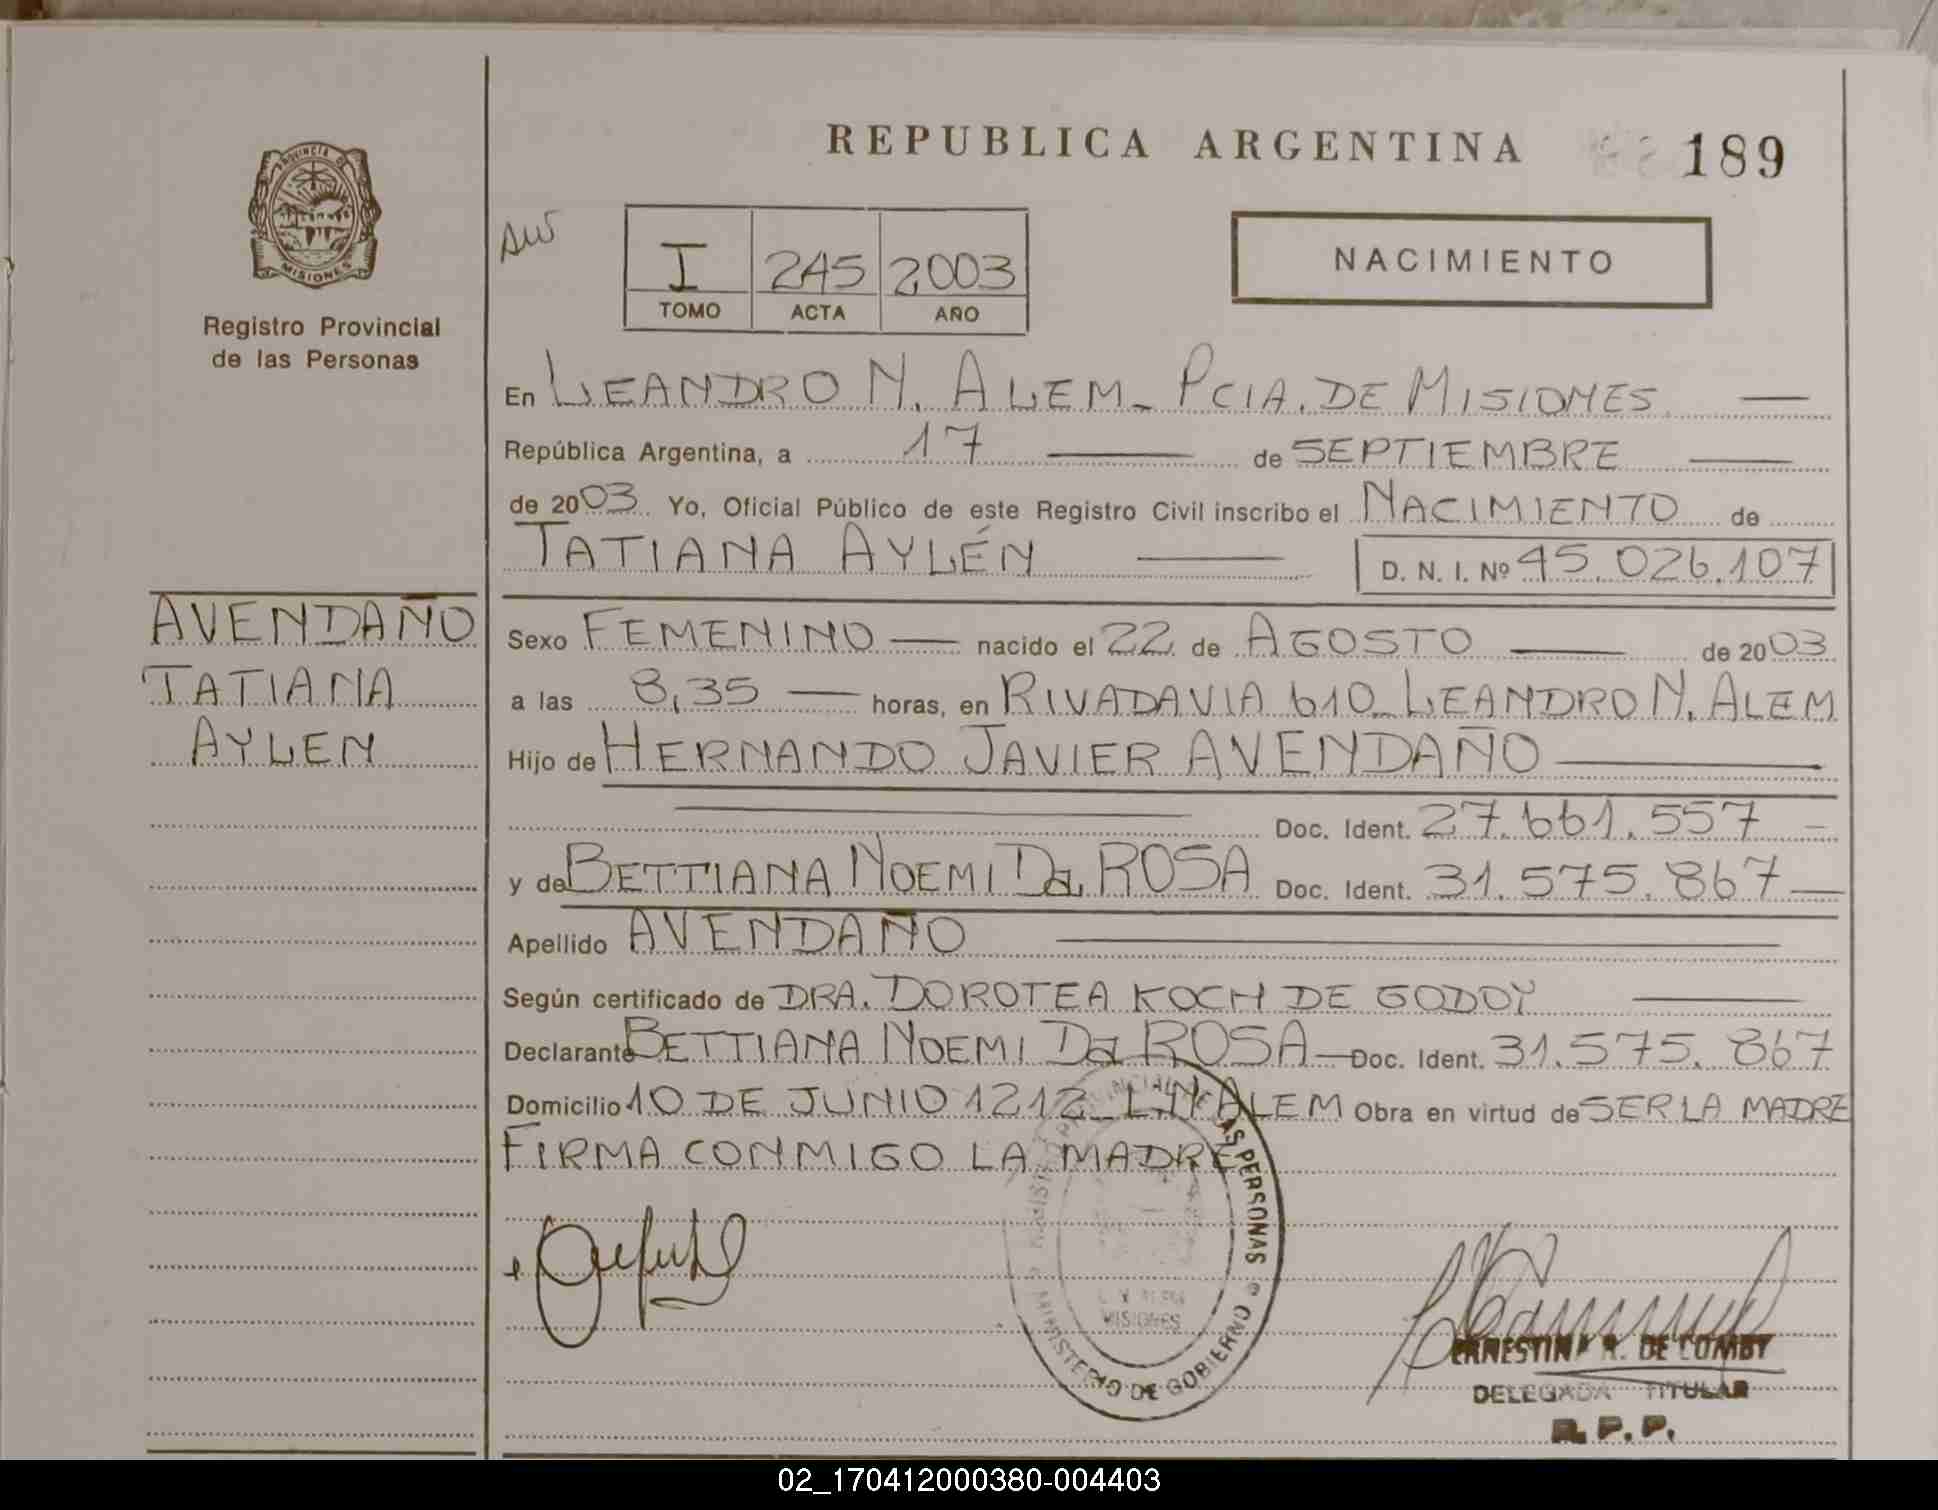 REPUBLICA ARGENTINA
189
PROVINCIA DE
MISIONES
Registro Provincial
de las Personas
I 245 2003
TOMO ACTA AÑO
NACIMIENTO
En LEANDRO N. ALEM - PCIA. DE MISIONES
República Argentina, a 17 de SEPTIEMBRE
de 2003 Yo, Oficial Público de este Registro Civil inscribo el NACIMIENTO de
TATIANA AYLÉN D. N. I. Nº 45.026.107
AVENDAÑO
TATIANA
AYLEN
Sexo FEMENINO nacido el 22 de AGOSTO de 2003
a las 8,35 horas, en RIVADAVIA 610 - LEANDRO N. ALEM
Hijo de HERNANDO JAVIER AVENDAÑO
Doc. Ident. 27.661.557
y de BETTIANA NOEMI Da ROSA Doc. Ident. 31.575.867
Apellido AVENDAÑO
Según certificado de DRA. DOROTEA KOCH DE GODOY
Declarante BETTIANA NOEMI Da ROSA Doc. Ident. 31.575.867
Domicilio 10 DE JUNIO 1212 - L.N. ALEM Obra en virtud de SER LA MADRE
FIRMA CONMIGO LA MADRE
REGISTRO PROVINCIAL DE LAS PERSONAS
MINISTERIO DE GOBIERNO
L. N. ALEM
MISIONES
ERNESTINA R. DE COMBY
DELEGADA TITULAR
R.P.P.
02_170412000380-004403